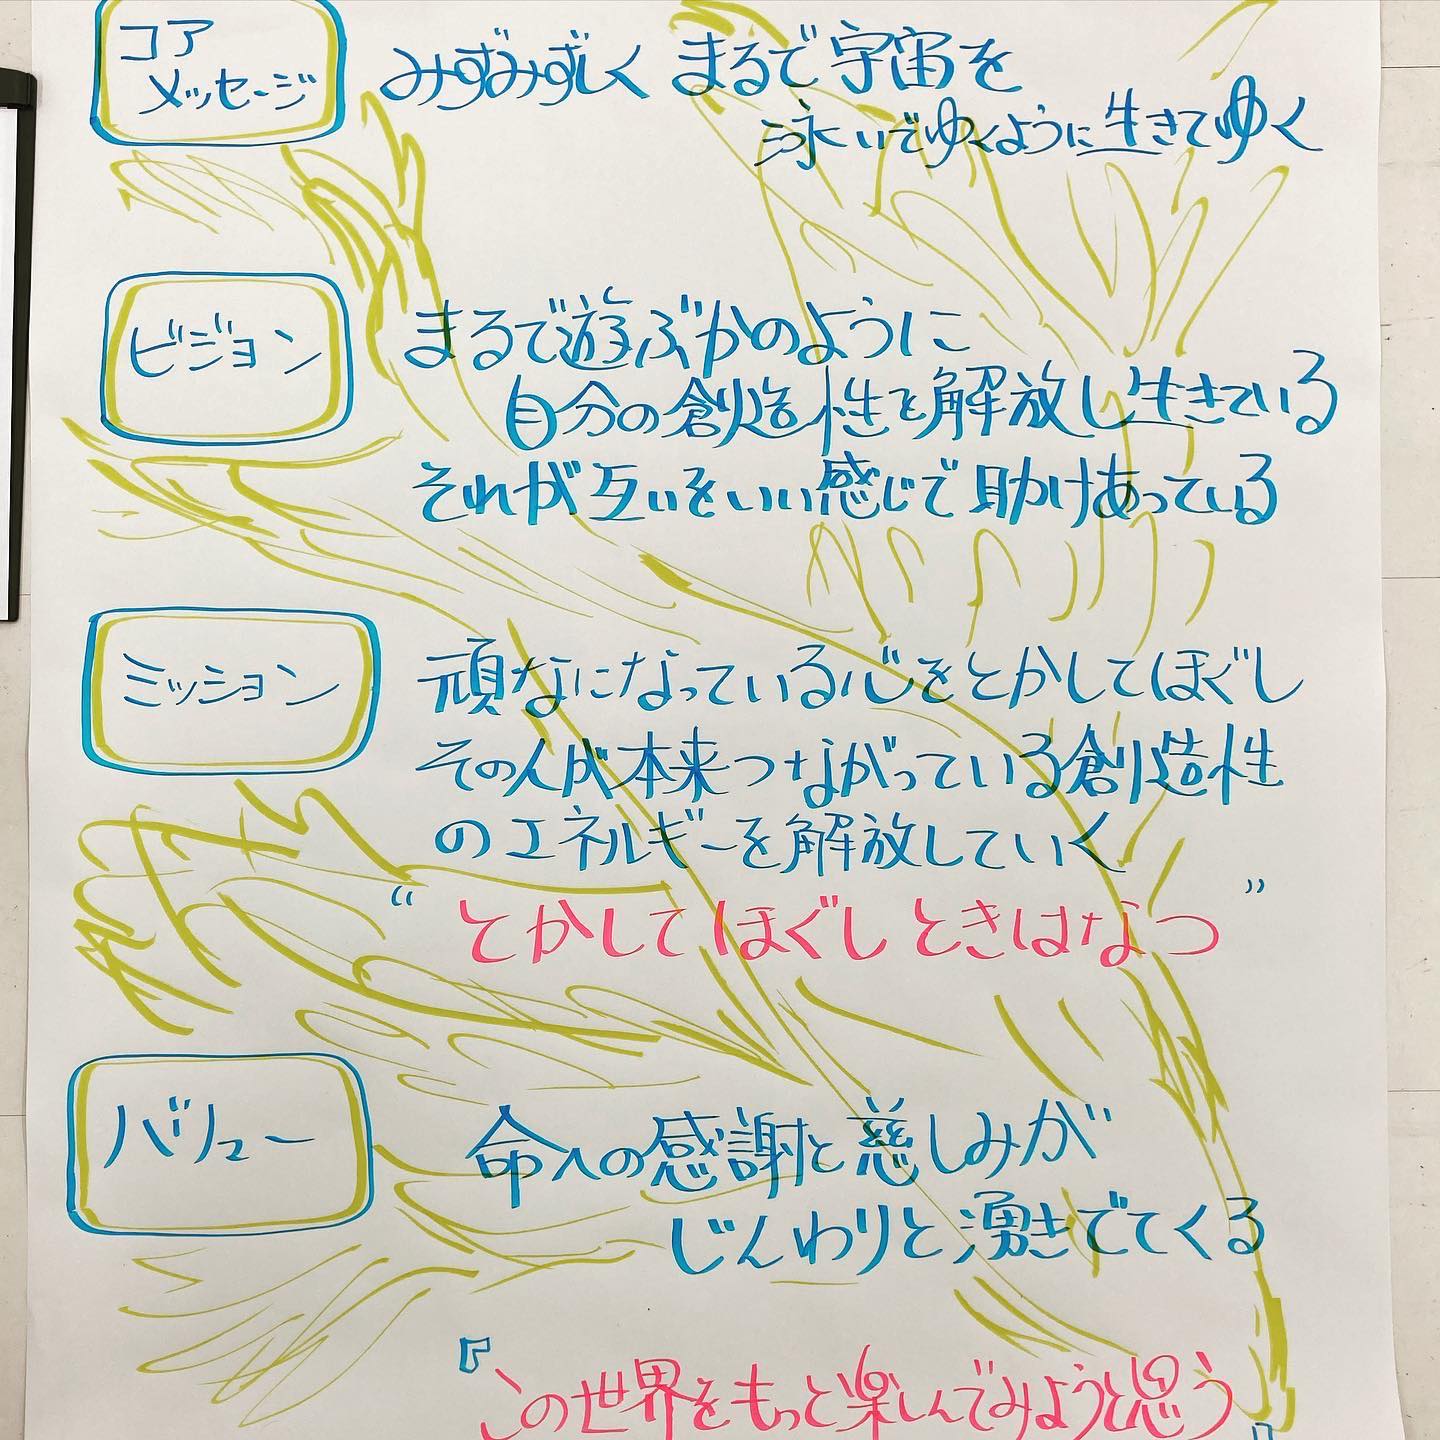 コア
メッセージ
みずみずしく まるで宇宙を
泳いでゆくように生きてゆく
ビジョン
まるで遊ぶかのように
自分の創造性を解放し生きている
それが互いをいい感じで助けあっている
ミッション
頑なになっている心をとかしてほぐし
その人が本来つながっている創造性
のエネルギーを解放していく
“とかしてほぐしときはなつ”
バリュー
命への感謝と慈しみが
じんわりと湧きでてくる
『この世界をもっと楽しんでみようと思う』